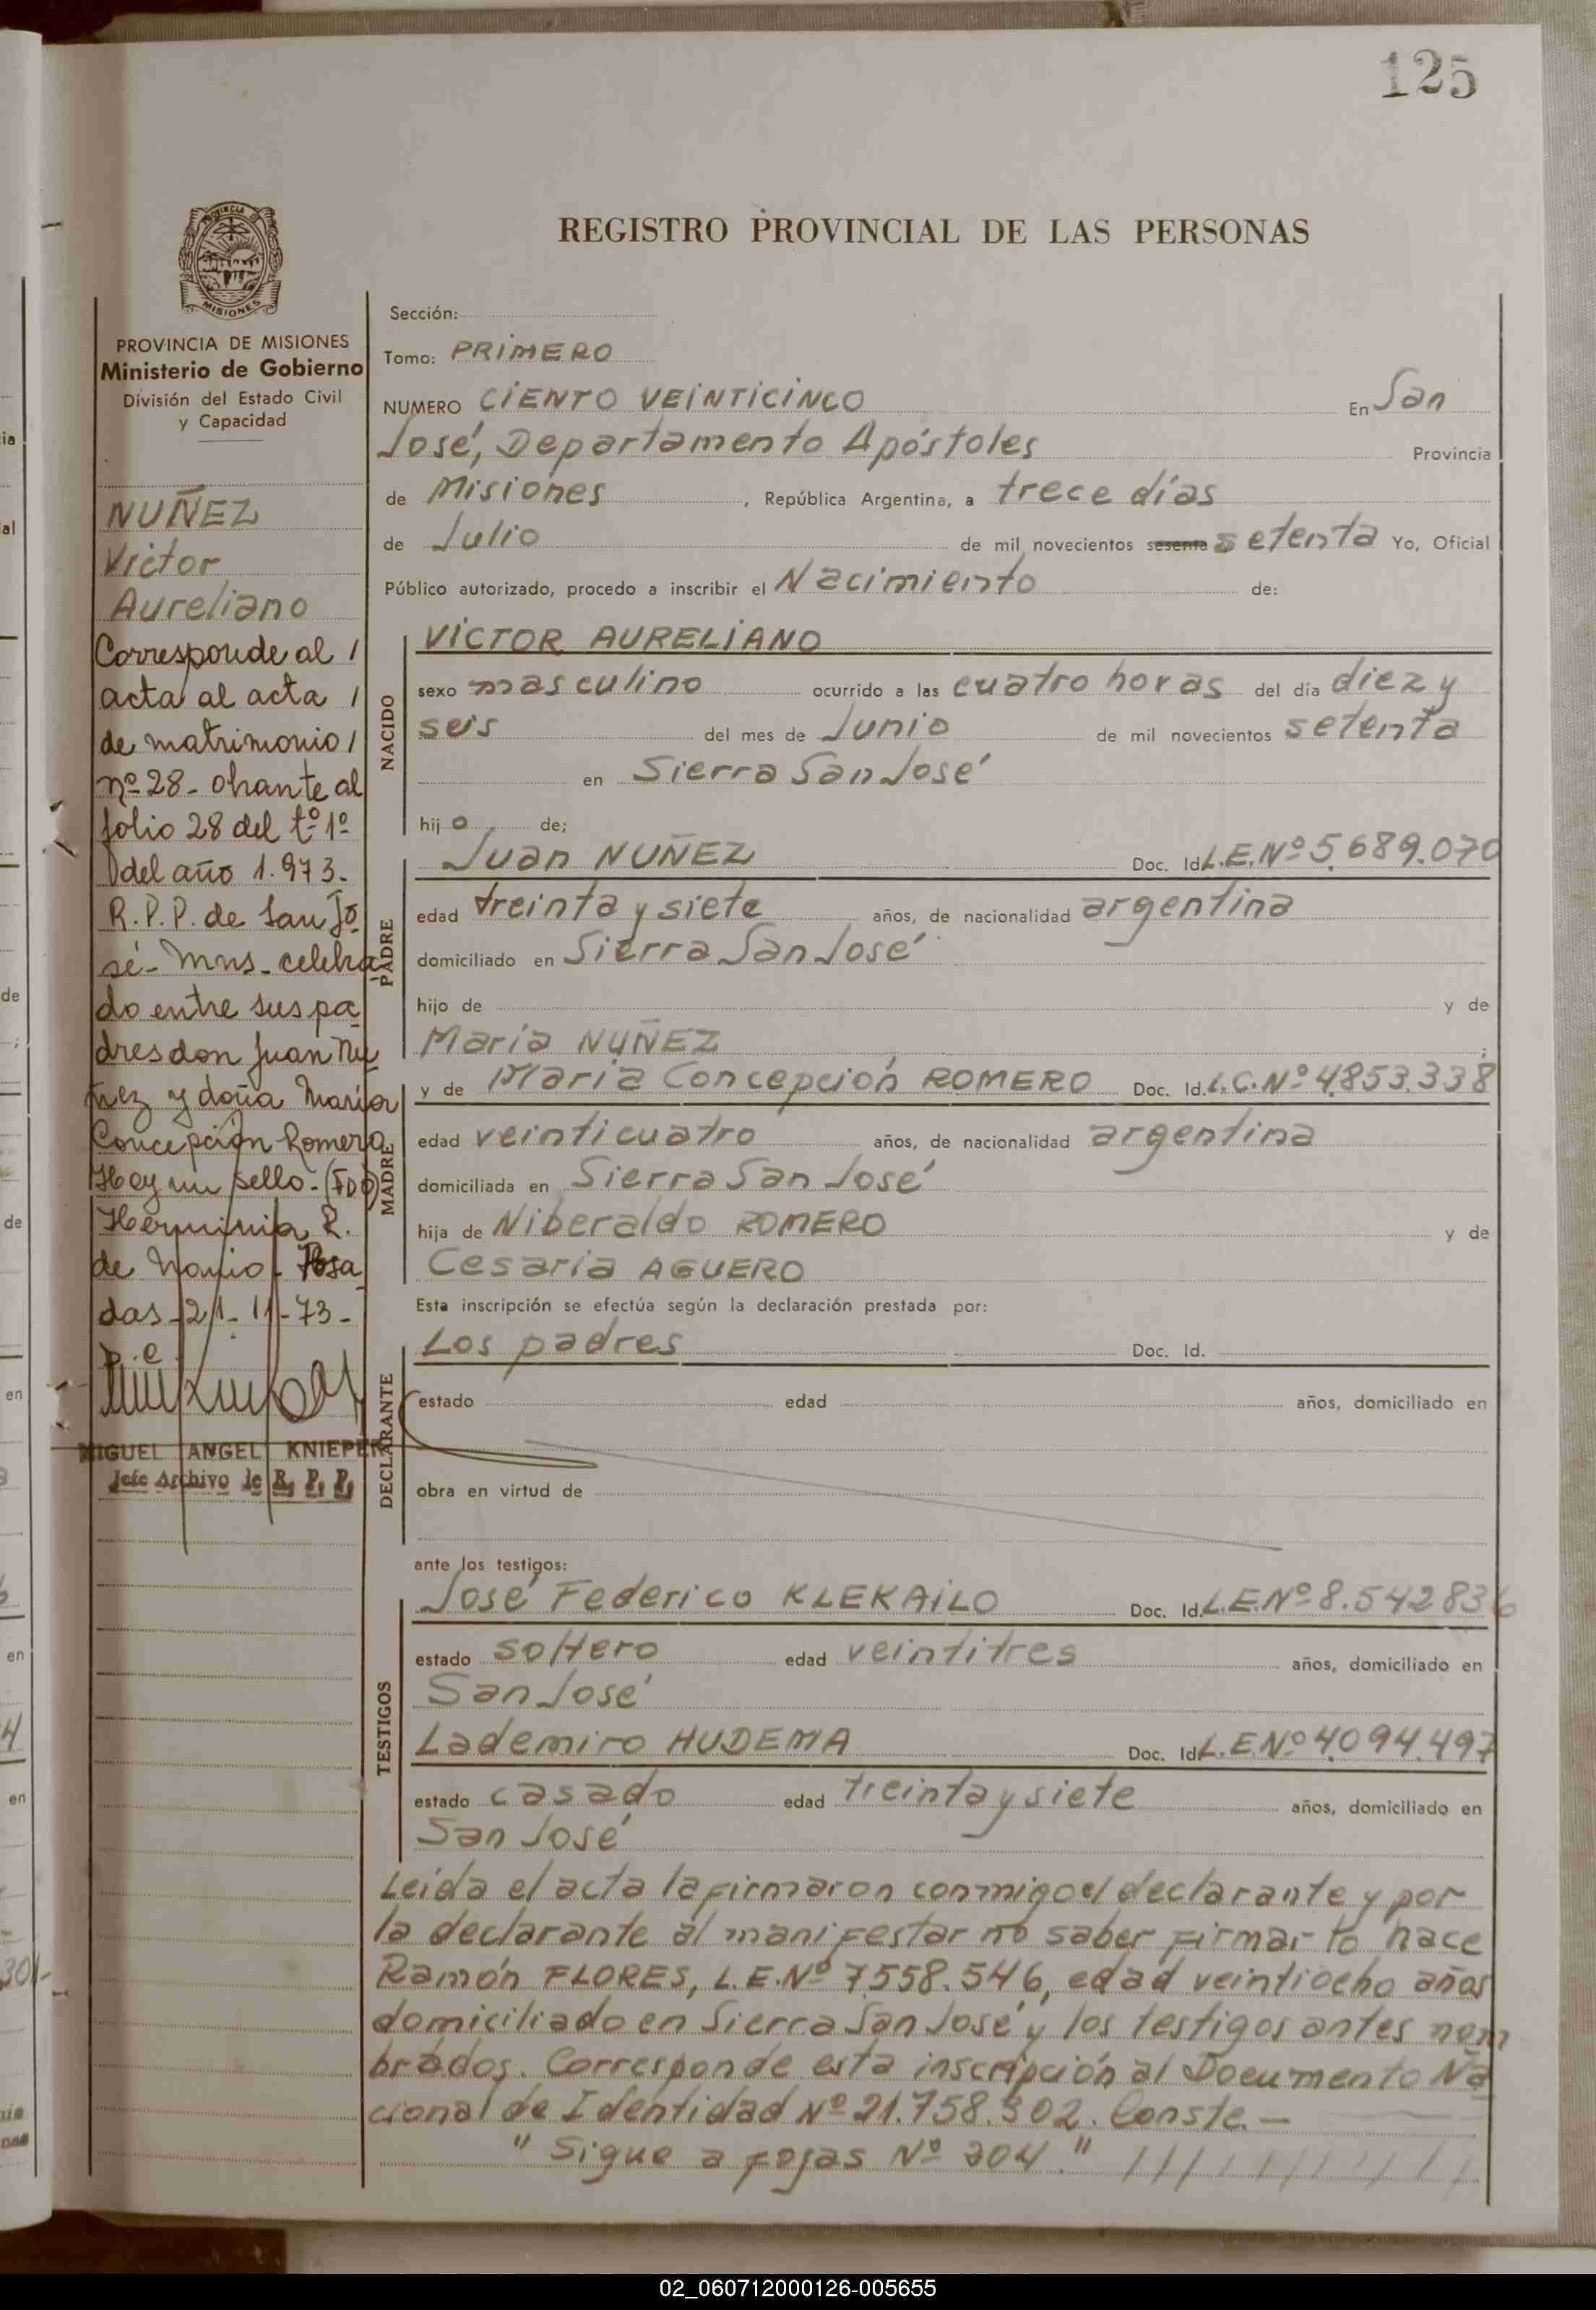 125
REGISTRO PROVINCIAL DE LAS PERSONAS
PROVINCIA DE
MISIONES
PROVINCIA DE MISIONES
Ministerio de Gobierno
División del Estado Civil
y Capacidad
NUÑEZ
Victor
Aureliano
Corresponde al /
acta al acta /
de matrimonio /
nº 28 - obrante al
folio 28 del tº 1º
del año 1.973-
R.P.P. de San Jo
sé - Mns - celebra
do entre sus pa
dres don Juan Nu
ñez y doña María
Concepción Romero
Hay un sello - (FDO)
Herminia R.
de - Posa
das - 21 - 11 - 73 -
p.e
MIGUEL ANGEL KNIEPER
Jefe Archivo de R. P. P.
Sección:
Tomo: PRIMERO
NUMERO CIENTO VEINTICINCO En San
José, Departamento Apóstoles Provincia
de Misiones, República Argentina, a trece días
de Julio de mil novecientos sesenta setenta Yo, Oficial
Público autorizado, procedo a inscribir el Nacimiento de:
NACIDO
VICTOR AURELIANO
sexo masculino ocurrido a las cuatro horas del día diez y
seis del mes de Junio de mil novecientos setenta
en Sierra San José
hijo de;
PADRE
Juan NUÑEZ Doc. Id. L.E.Nº 5.689.070
edad treinta y siete años, de nacionalidad argentina
domiciliado en Sierra San José
hijo de y de
María NUÑEZ ;
MADRE
y de María Concepción ROMERO Doc. Id. L.C.Nº 4.853.338
edad veinticuatro años, de nacionalidad argentina
domiciliada en Sierra San José
hija de Niberaldo ROMERO y de
Cesaria AGUERO
Esta inscripción se efectúa según la declaración prestada por:
DECLARANTE
Los padres Doc. Id.
estado edad años, domiciliado en
obra en virtud de
ante los testigos:
TESTIGOS
José Federico KLEKAILO Doc. Id. L.E.Nº 8.542836
estado soltero edad veintitres años, domiciliado en
San José
Lademiro HUDEMA Doc. Id. L.E.Nº 4.094.497
estado casado edad treinta y siete años, domiciliado en
San José
Leída el acta la firmaron conmigo el declarante y por
la declarante al manifestar no saber firmar lo hace
Ramón FLORES, L.E.Nº 7.558.546, edad veintiocho años
domiciliado en Sierra San José y los testigos antes nom
brados. Corresponde esta inscripción al Documento Na
cional de Identidad Nº 21.758.302. Conste.-
"Sigue a fojas Nº 204." / / / / / / / / / /
02_060712000126-005655